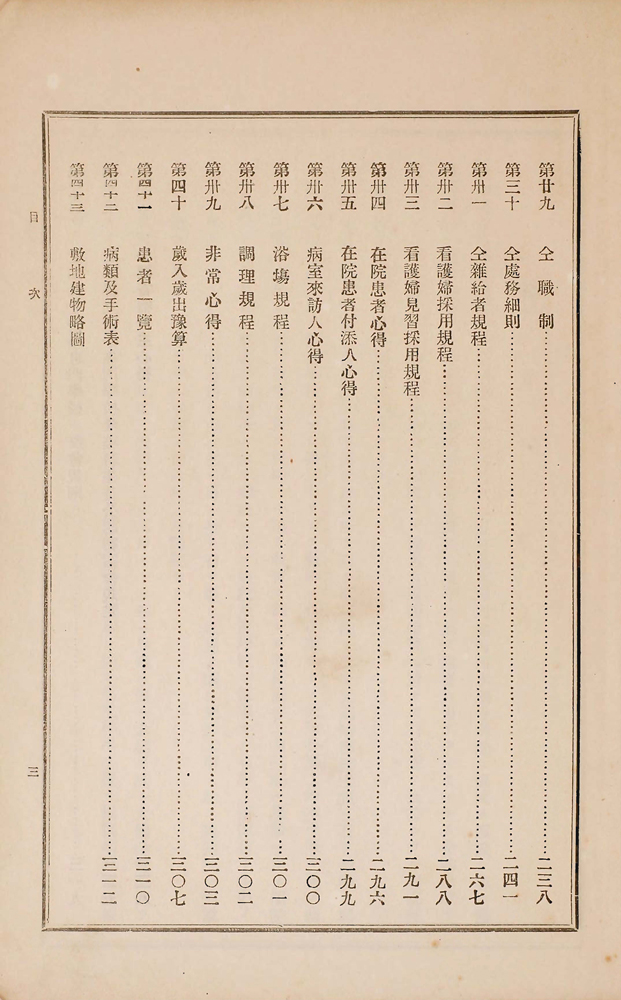 第廿九 仝職制……二三八
第三十 仝處務細則……二四一
第卅一 仝雜給者規程……二六七
第卅二 看護婦採用規程……二八八
第卅三 看護婦見習採用規程……二九一
第卅四 在院患者心得……二九六
第卅五 在院患者付添人心得……二九九
第卅六 病室來訪人心得……三〇〇
第卅七 浴塲規程……三〇一
第卅八 調理規程……三〇二
第卅九 非常心得……三〇三
第四十 歲入歲出豫算……三〇七
第四十一 患者一覽……三一〇
第四十二 病類及手術表……三一二
第四十三 敷地建物略圖
目次 三